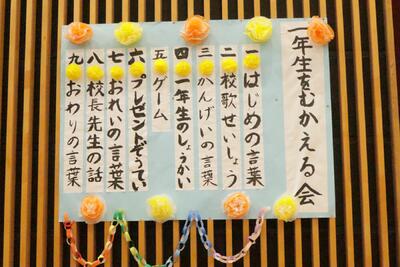 一年生をむかえる会
一 はじめの言葉
二 校歌せいしょう
三 かんげいの言葉
四 一年生のしょうかい
五 ゲーム
六 プレゼントぞうてい
七 おれいの言葉
八 校長先生の話
九 おわりの言葉